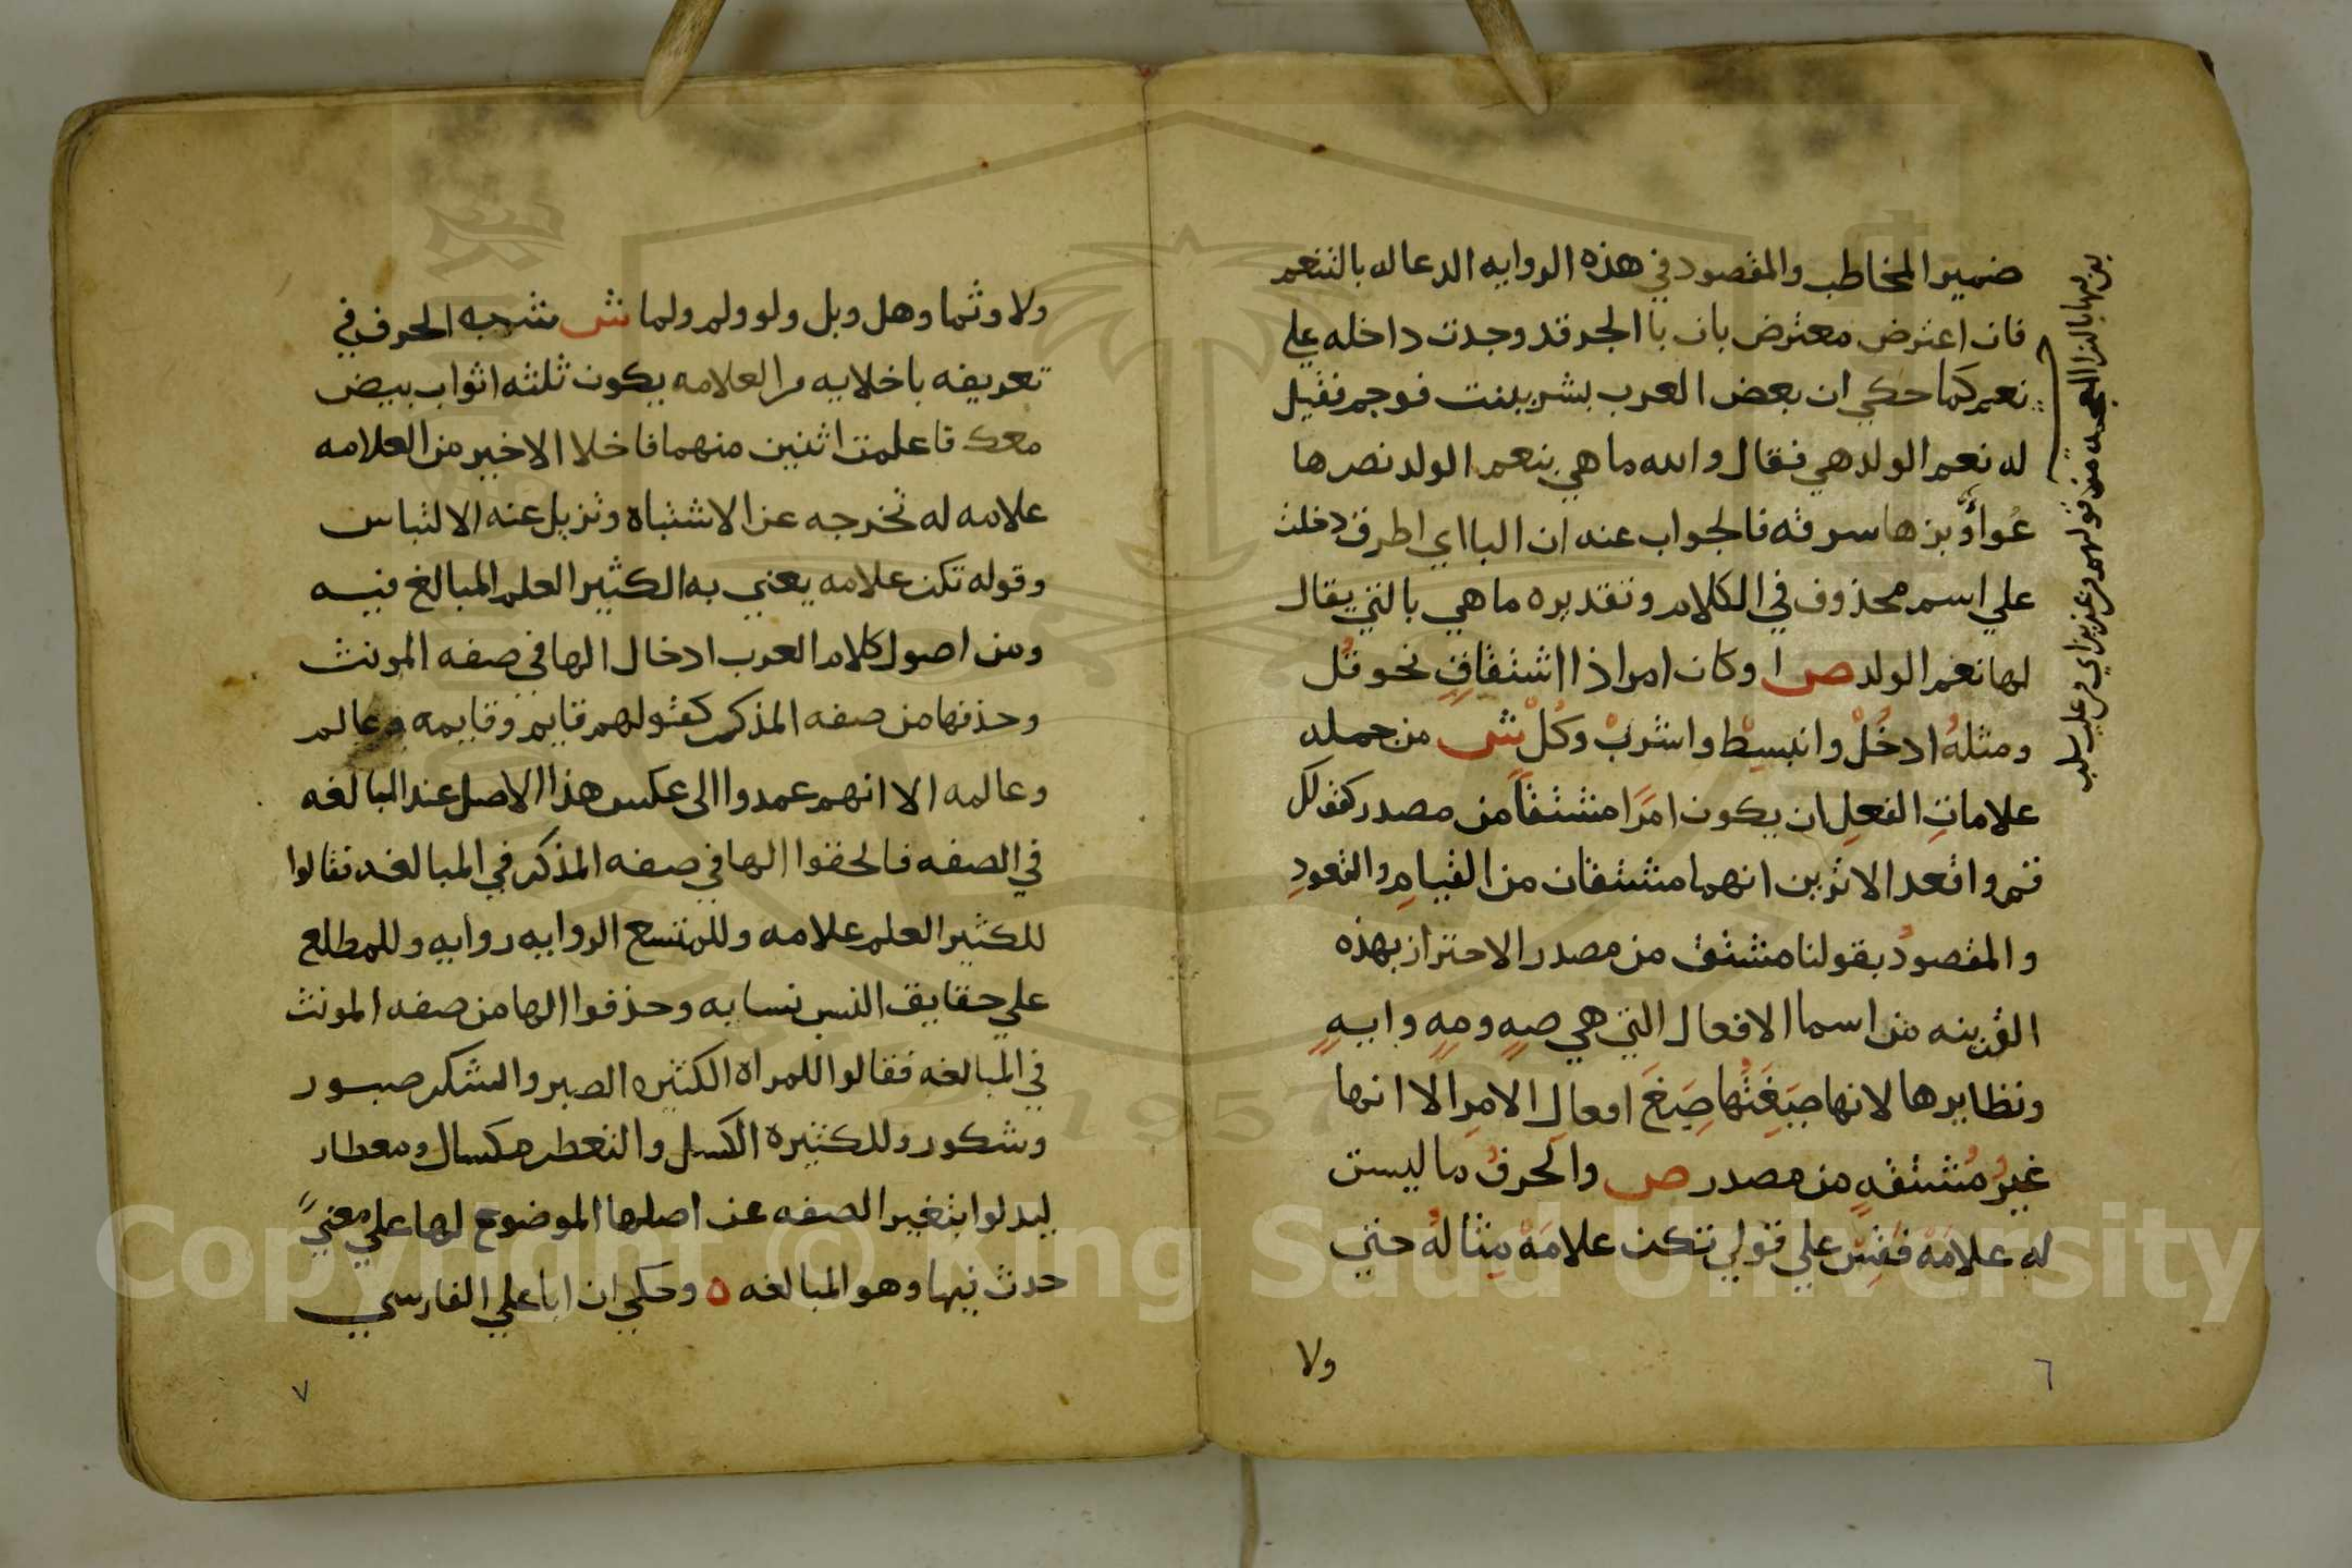 ضمير المخاطب والمقصود في هذه الروايه الدعا له بالتنعم
فان اعترض معترض بان با الجر قد وجدت داخله علي
نعم كما حكي ان بعض العرب بشر ببنت فوجم فقيل
له نعم الولد هي فقال والله ما هي بنعم الولد نصرها
عواؤ بزها سرقه فالجواب عنه ان البا اي اطرق دخلت
علي اسم محذوف في الكلام وتقديره ما هي بالتي يقال
لها نعم الولد ص او كان امرا ذا اشتقاقٍ نحو قل
ومثلهُ ادخُلْ وانبسِطْ واشربْ وكُلْ ش من جمله
علاماتِ الفعلِ ان يكون امرًا مشتقاً من مصدر كقولك
قم واقعد الا ترين انهما مشتقان من القيامِ والقعودِ
والمقصودُ بقولنا مشتق من مصدر الاحتراز بهذه
القرينه من اسما الافعال التي هي صهٍ ومهٍ وايهٍ
ونظايرها لانها صِيغَتُها صِيَغَ افعالِ الامرِ الا انها
غيرُ مُشتقهٍ من مصدر ص والحرفُ ما ليست
لهِ علامَهْ فَقِسْ علي قولي تكن علامَهْ مِثالُهُ حتي
ولا
٦
بزها بالزا المعجمه من قولهم من عز بز اي من غلب سلب
ولا وثما وهل وبل ولو ولم ولما ش شبه الحرف في
تعريفه باخلايه من العلامه بكون ثلثه اثواب بيض
معك فاعلمت اثنين منهما فاخلا الاخير من العلامه
علامه له تخرجه عن الاشتباه وتزيل عنه الالتباس
وقوله تكن علامه يعني به الكثير العلم المبالغ فيه
ومن اصول كلام العرب ادخال الها في صفه المونث
وحذفها من صفه المذكر كقولهم قايم وقايمه وعالم
وعالمه الا انهم عمدوا الى عكس هذا الاصل عند المبالغه
في الصفه فالحقوا الها في صفه المذكر في المبالغه فقالوا
للكثير العلم علامه وللمتسع الروايه روايه وللمطلع
علي حقايق النسب نسابه وحذفوا الها من صفه المونث
في المبالغه فقالوا للمراه الكثيره الصبر والشكر صبور
وشكور وللكثيره الكسل والتعطر مكسال ومعطار
ليدلوا بتغيير الصفه عن اصلها الموضوع لها علي معنيً
حدث فيها وهو المبالغه ه وحكي ان ابا علي الفارسي
٧
1957
Copyright © King Saud University